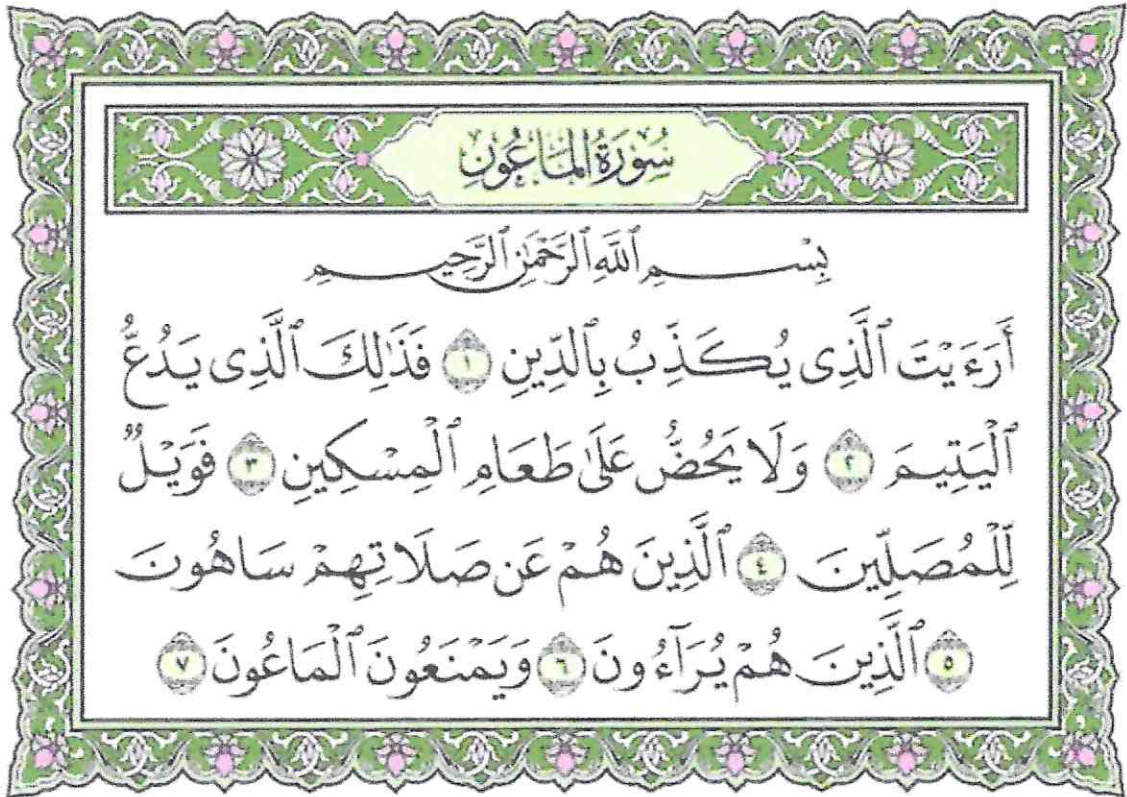 سُورَةُ المَاعُونِ
بِسْمِ ٱللَّهِ ٱلرَّحْمَٰنِ ٱلرَّحِيمِ
أَرَءَيْتَ ٱلَّذِى يُكَذِّبُ بِٱلدِّينِ ١ فَذَٰلِكَ ٱلَّذِى يَدُعُّ
ٱلْيَتِيمَ ٢ وَلَا يَحُضُّ عَلَىٰ طَعَامِ ٱلْمِسْكِينِ ٣ فَوَيْلٌ
لِّلْمُصَلِّينَ ٤ ٱلَّذِينَ هُمْ عَن صَلَاتِهِمْ سَاهُونَ
٥ ٱلَّذِينَ هُمْ يُرَآءُونَ ٦ وَيَمْنَعُونَ ٱلْمَاعُونَ ٧